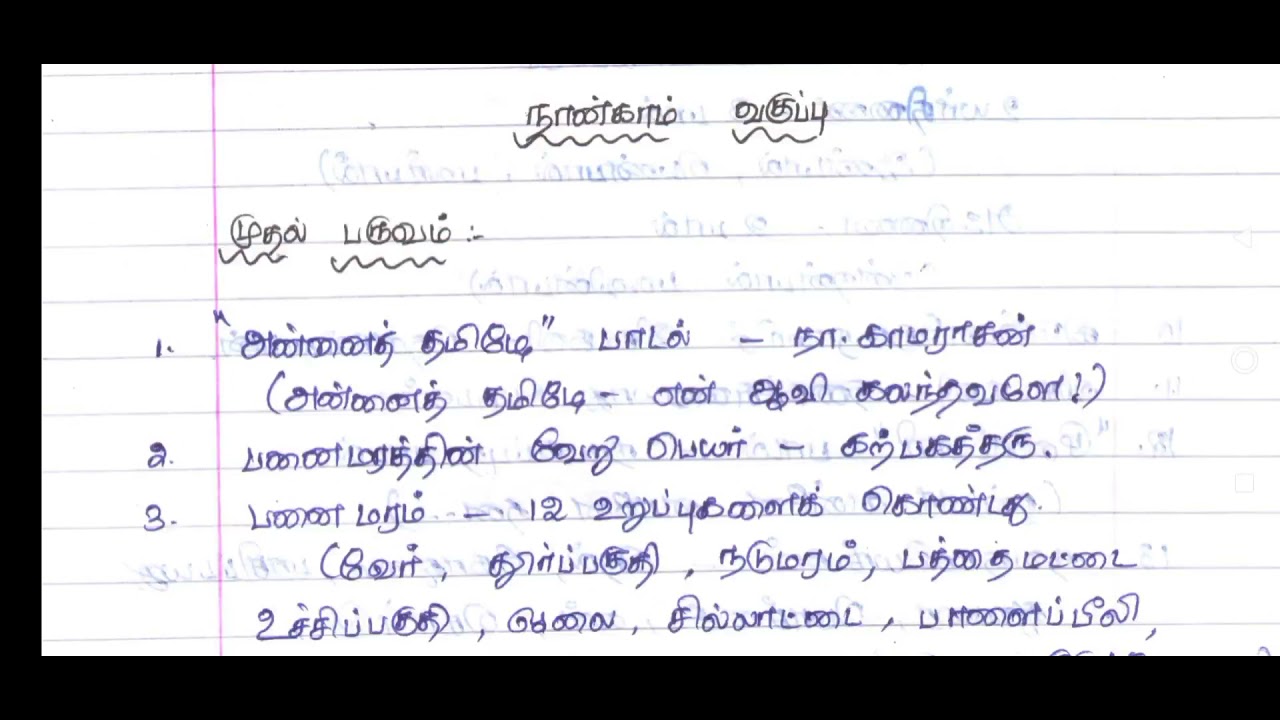 நான்காம் வகுப்பு
முதல் பருவம் :-
1. "அன்னைத் தமிழே" பாடல் - நா. காமராசன்
(அன்னைத் தமிழே - என் ஆவி கலந்தவளே!)
2. பனைமரத்தின் வேறு பெயர் - கற்பகத்தரு.
3. பனை மரம் - 12 உறுப்புகளைக் கொண்டது.
(வேர், தூர்ப்பகுதி, நடுமரம், பத்தைமட்டை
உச்சிப்பகுதி, ஓலை, சில்லாட்டை, பாளைப்பீலி,